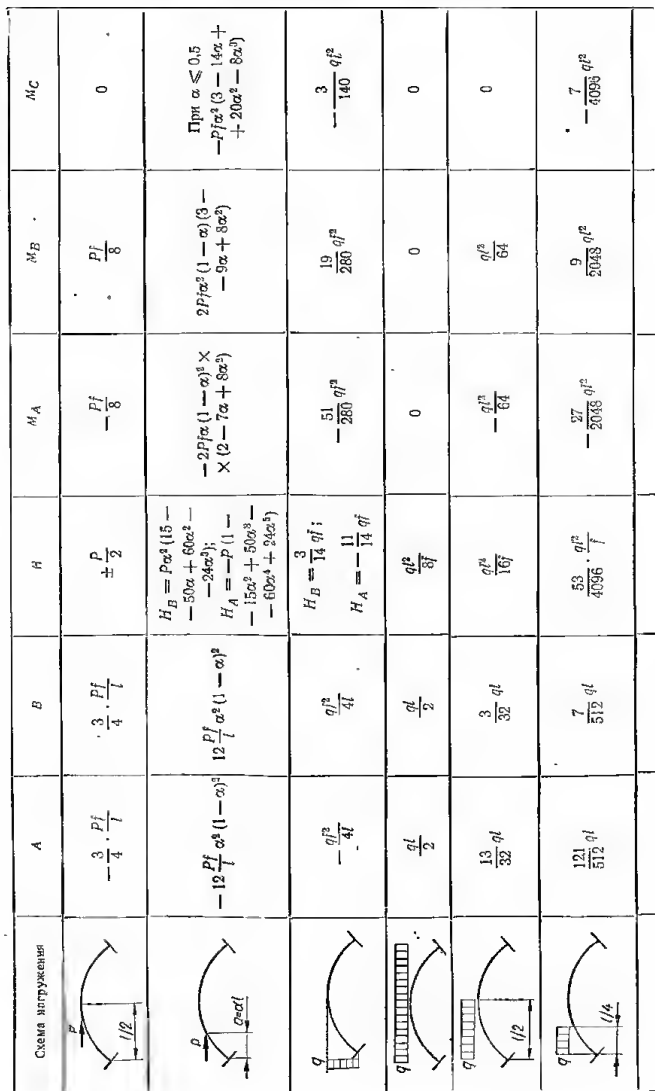 Схема нагружения A B H M_A M_B M_C
P l/2
-3/4 · Pf/l
3/4 · Pf/l
± P/2
- Pf/8
Pf/8
0
P a=αl
-12 Pf/l α² (1-α)²
12 Pf/l α² (1-α)²
H_B = Pα² (15 -
- 50α + 60α² -
- 24α³);
H_A = -P (1 -
- 15α² + 50α³ -
- 60α⁴ + 24α⁵)
-2Pfα (1-α)² ×
× (2 - 7α + 8α²)
2Pfα² (1-α) (3 -
- 9α + 8α²)
При α ⩽ 0,5
-Pfα² (3 - 14α +
+ 20α² - 8α³)
q
- qf²/4l
qf²/4l
H_B = 3/14 qf;
H_A = - 11/14 qf
- 51/280 qf²
19/280 qf²
- 3/140 qf²
q
ql/2
ql/2
ql²/8f
0
0
0
q l/2
13/32 ql
3/32 ql
ql²/16f
- ql²/64
ql²/64
0
q l/4
121/512 ql
7/512 ql
53/4096 · ql²/f
- 27/2048 ql²
9/2048 ql²
- 7/4096 ql²